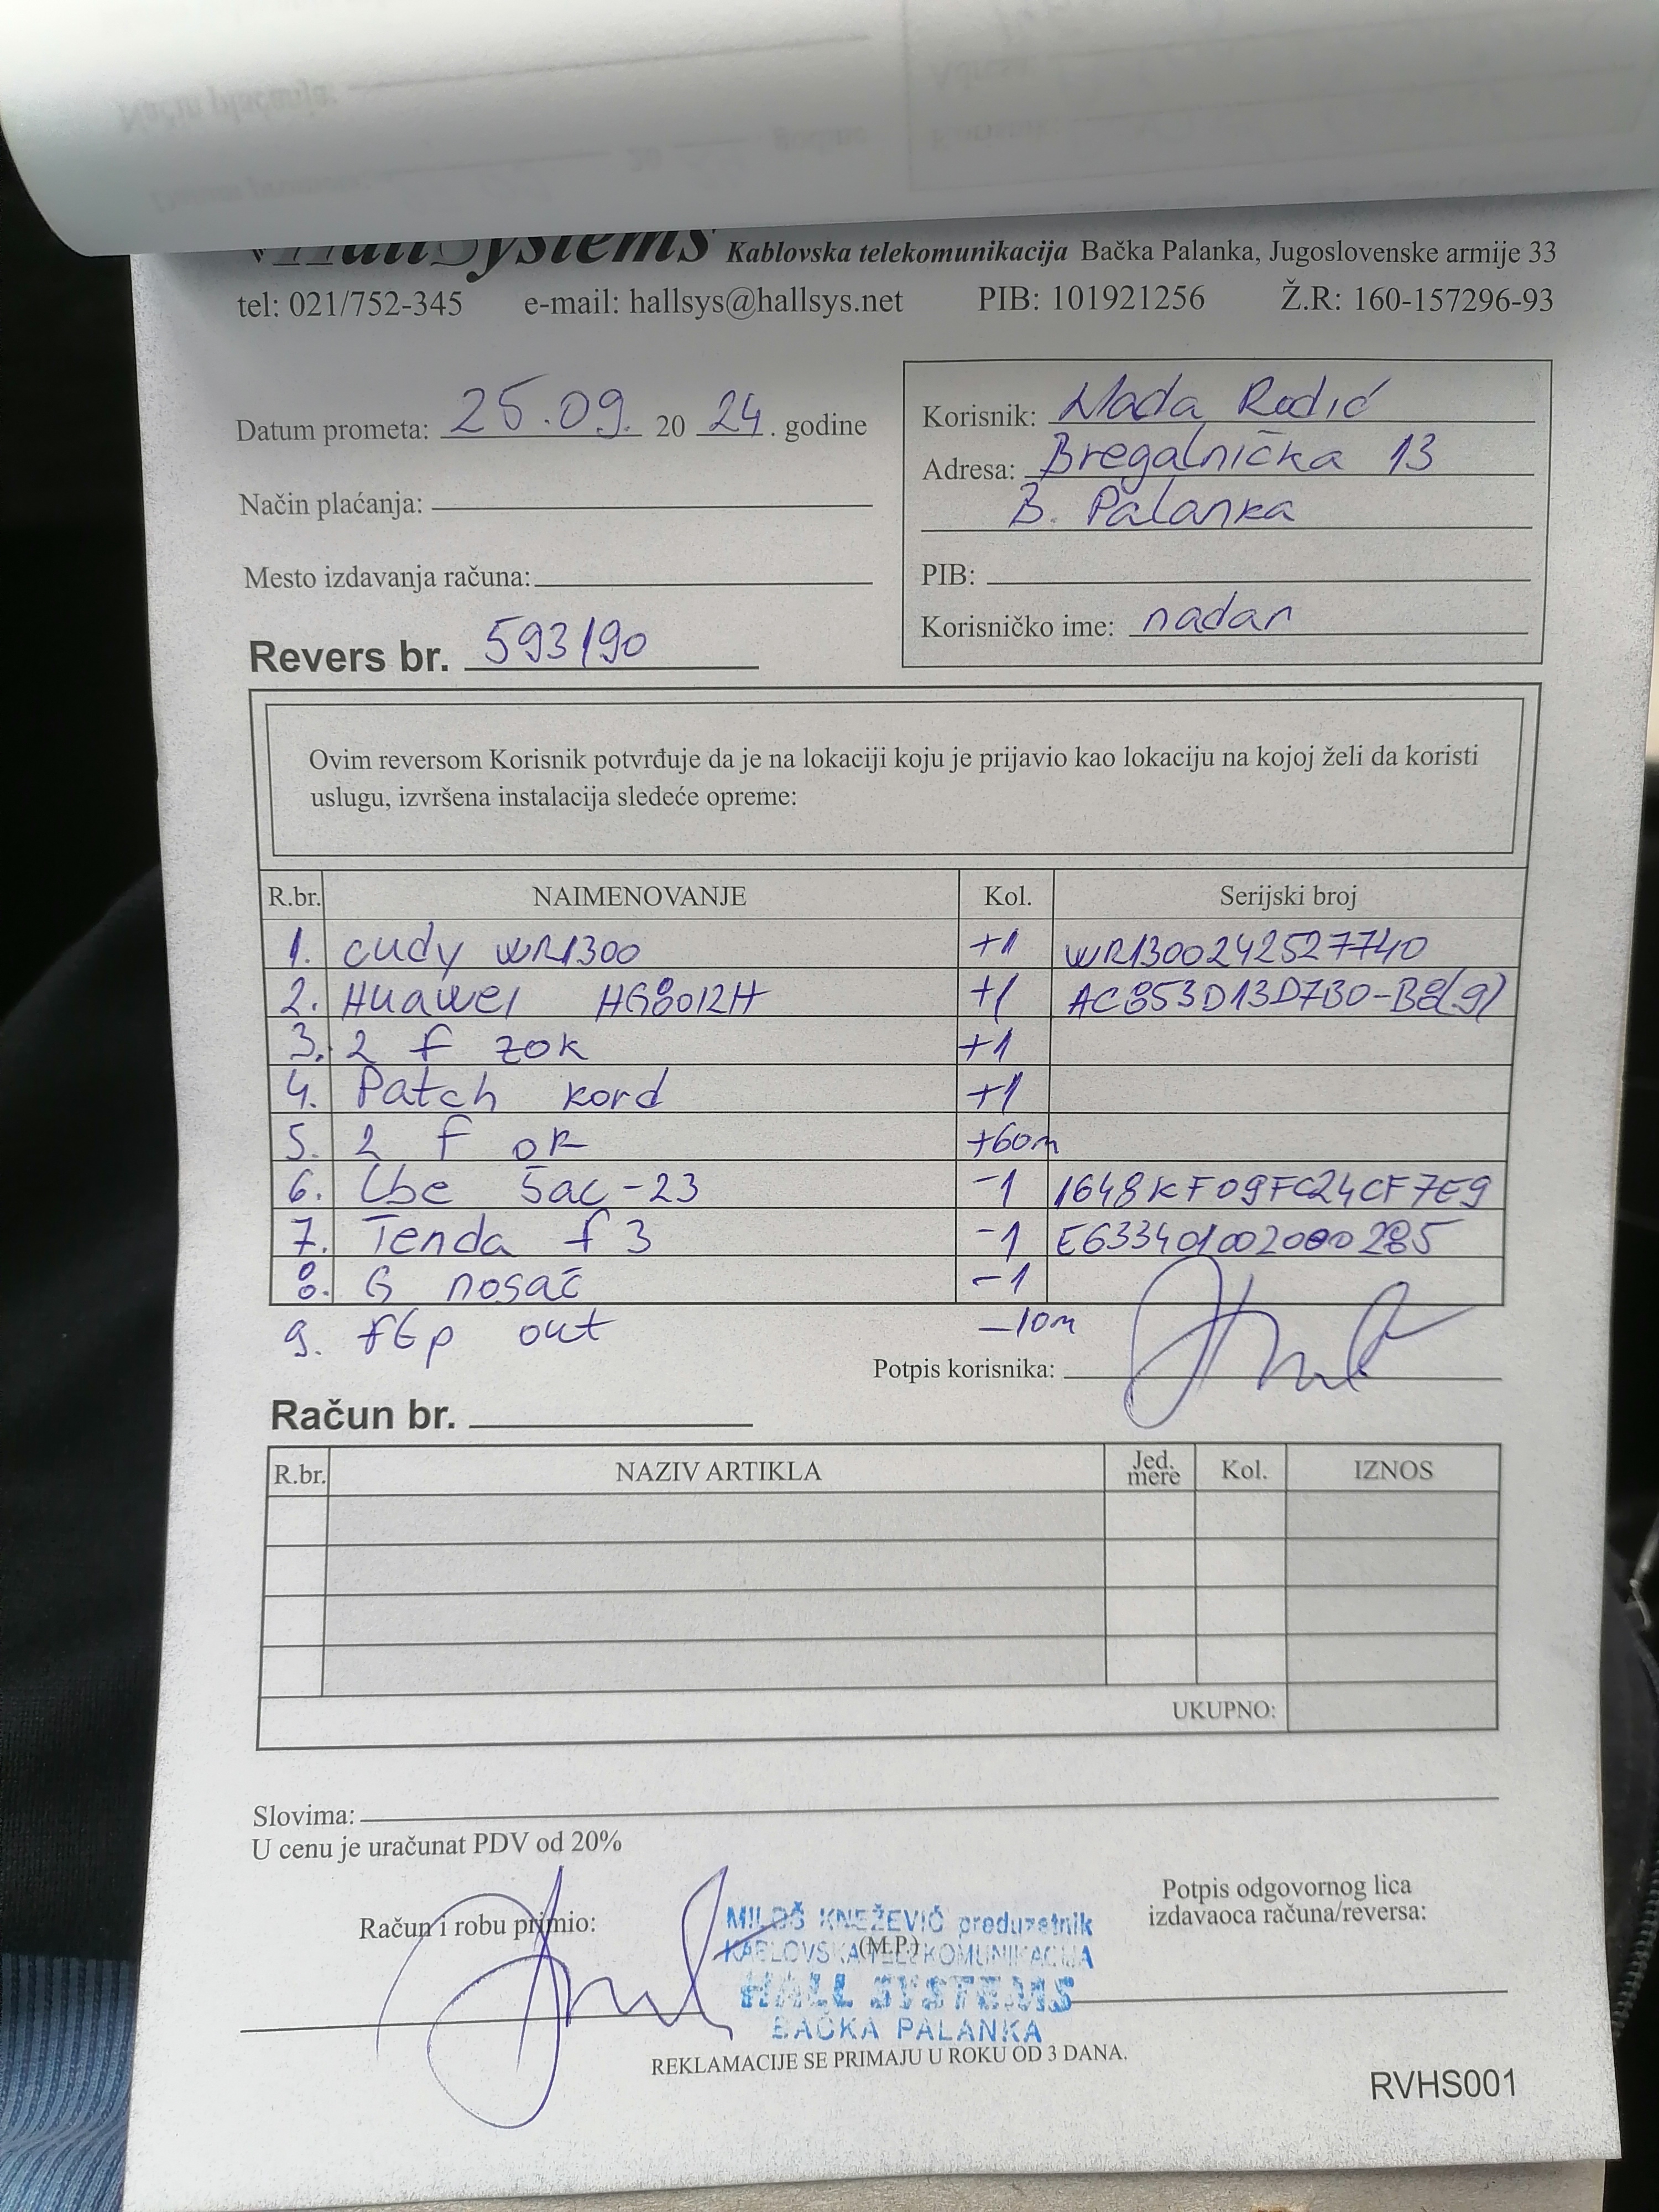 HallSystems Kablovska telekomunikacija Bačka Palanka, Jugoslovenske armije 33
tel: 021/752-345 e-mail: hallsys@hallsys.net PIB: 101921256 Ž.R: 160-157296-93
Datum prometa: 25.09. 20 24. godine
Način plaćanja:
Mesto izdavanja računa:
Revers br. 593/90
Korisnik: Nada Rodić
Adresa: Bregalnička 13
B. Palanka
PIB:
Korisničko ime: nadar
Ovim reversom Korisnik potvrđuje da je na lokaciji koju je prijavio kao lokaciju na kojoj želi da koristi
uslugu, izvršena instalacija sledeće opreme:
R.br. NAIMENOVANJE Kol. Serijski broj
1. cudy WR1300 +1 WR1300242527740
2. Huawei HG8012H +1 AC853D13D7B0-B8(9)
3. 2 f zok +1
4. Patch kord +1
5. 2 f ok +60m
6. Lbe 5ac-23 -1 1648KF09FC24CF7E9
7. Tenda f3 -1 E6334010020000285
8. G nosač -1
9. fGp out -10m
Potpis korisnika:
Račun br.
R.br. NAZIV ARTIKLA Jed. mere Kol. IZNOS
UKUPNO:
Slovima:
U cenu je uračunat PDV od 20%
Račun i robu primio:
MILOŠ KNEŽEVIĆ preduzetnik
KABLOVSKA TELEKOMUNIKACIJA
(M.P.)
HALL SYSTEMS
BAČKA PALANKA
Potpis odgovornog lica
izdavaoca računa/reversa:
REKLAMACIJE SE PRIMAJU U ROKU OD 3 DANA.
RVHS001